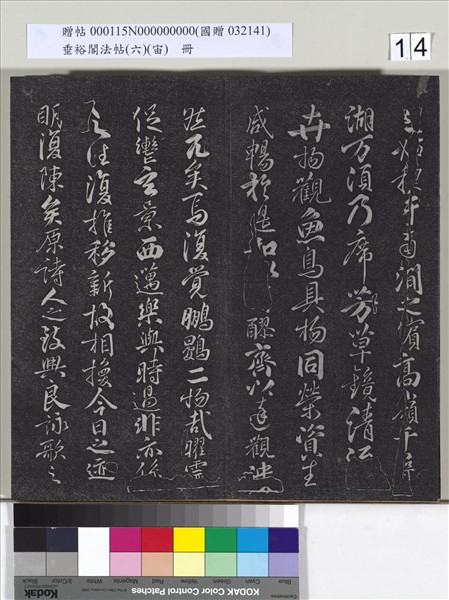 贈帖 000115N000000000(國贈 032141)
垂裕閣法帖(六)(宙) 冊
14
南澗之濱高嶺千尋
湖万頃乃席芳草鏡清流
卉物觀魚鳥具物同榮資生
咸暢於是和以醪齊以達觀泱
然兀矣焉復覺鵬鷃二物哉曜靈
促轡玄景西邁樂與時過悲亦係
之往復推移新故相換今日之迹
明復陳矣原詩人之致興良詠歌之
Blue
Cyan
Green
Yellow
Red
Magenta
White
3/Color
Black
Kodak
KODAK Color Control Patches